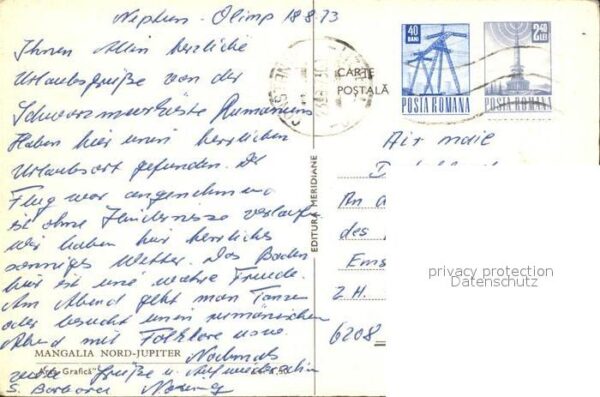 Neptun - Olimp 18.8.73
Ihnen Allen herzliche
Urlaubsgrüße von der
Schwarzmeerküste Rumäniens
Haben hier einen herrlichen
Urlaubsort gefunden. Der
Flug war angenehm und
ist ohne Hindernisse verlaufen
Wir haben hier herrliches
sonniges Wetter. Das Baden
hier ist eine wahre Freude.
Am Abend geht man Tanzen
oder besucht einen rumänischen
Abend mit Folklore usw.
MANGALIA NORD-JUPITER
Nochmals
"Arta Grafică"
viele Grüße u. Aufwiedersehn
S. Barbara
EDITURA MERIDIANE
CARTE
POȘTALĂ
40
BANI
POSTA ROMANA
2,40
LEI
POSTA ROMANA
Air maie
An
des
Ems
z.H.
6208
privacy protection
Datenschutz